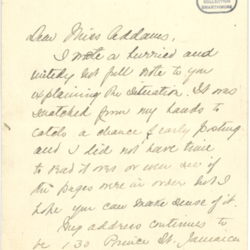 COLLECTION
SWARTHMORE
Dear Miss Addams,
I wrote a hurried and
not full note to you
explaining the situation. It was
snatched from my hands to
catch a chance of early posting
and I did not have time
to read it over or even see if
the pages were in order but I
hope you can make sense of it.
My address continues to
be 130 Prince St. Jamaica